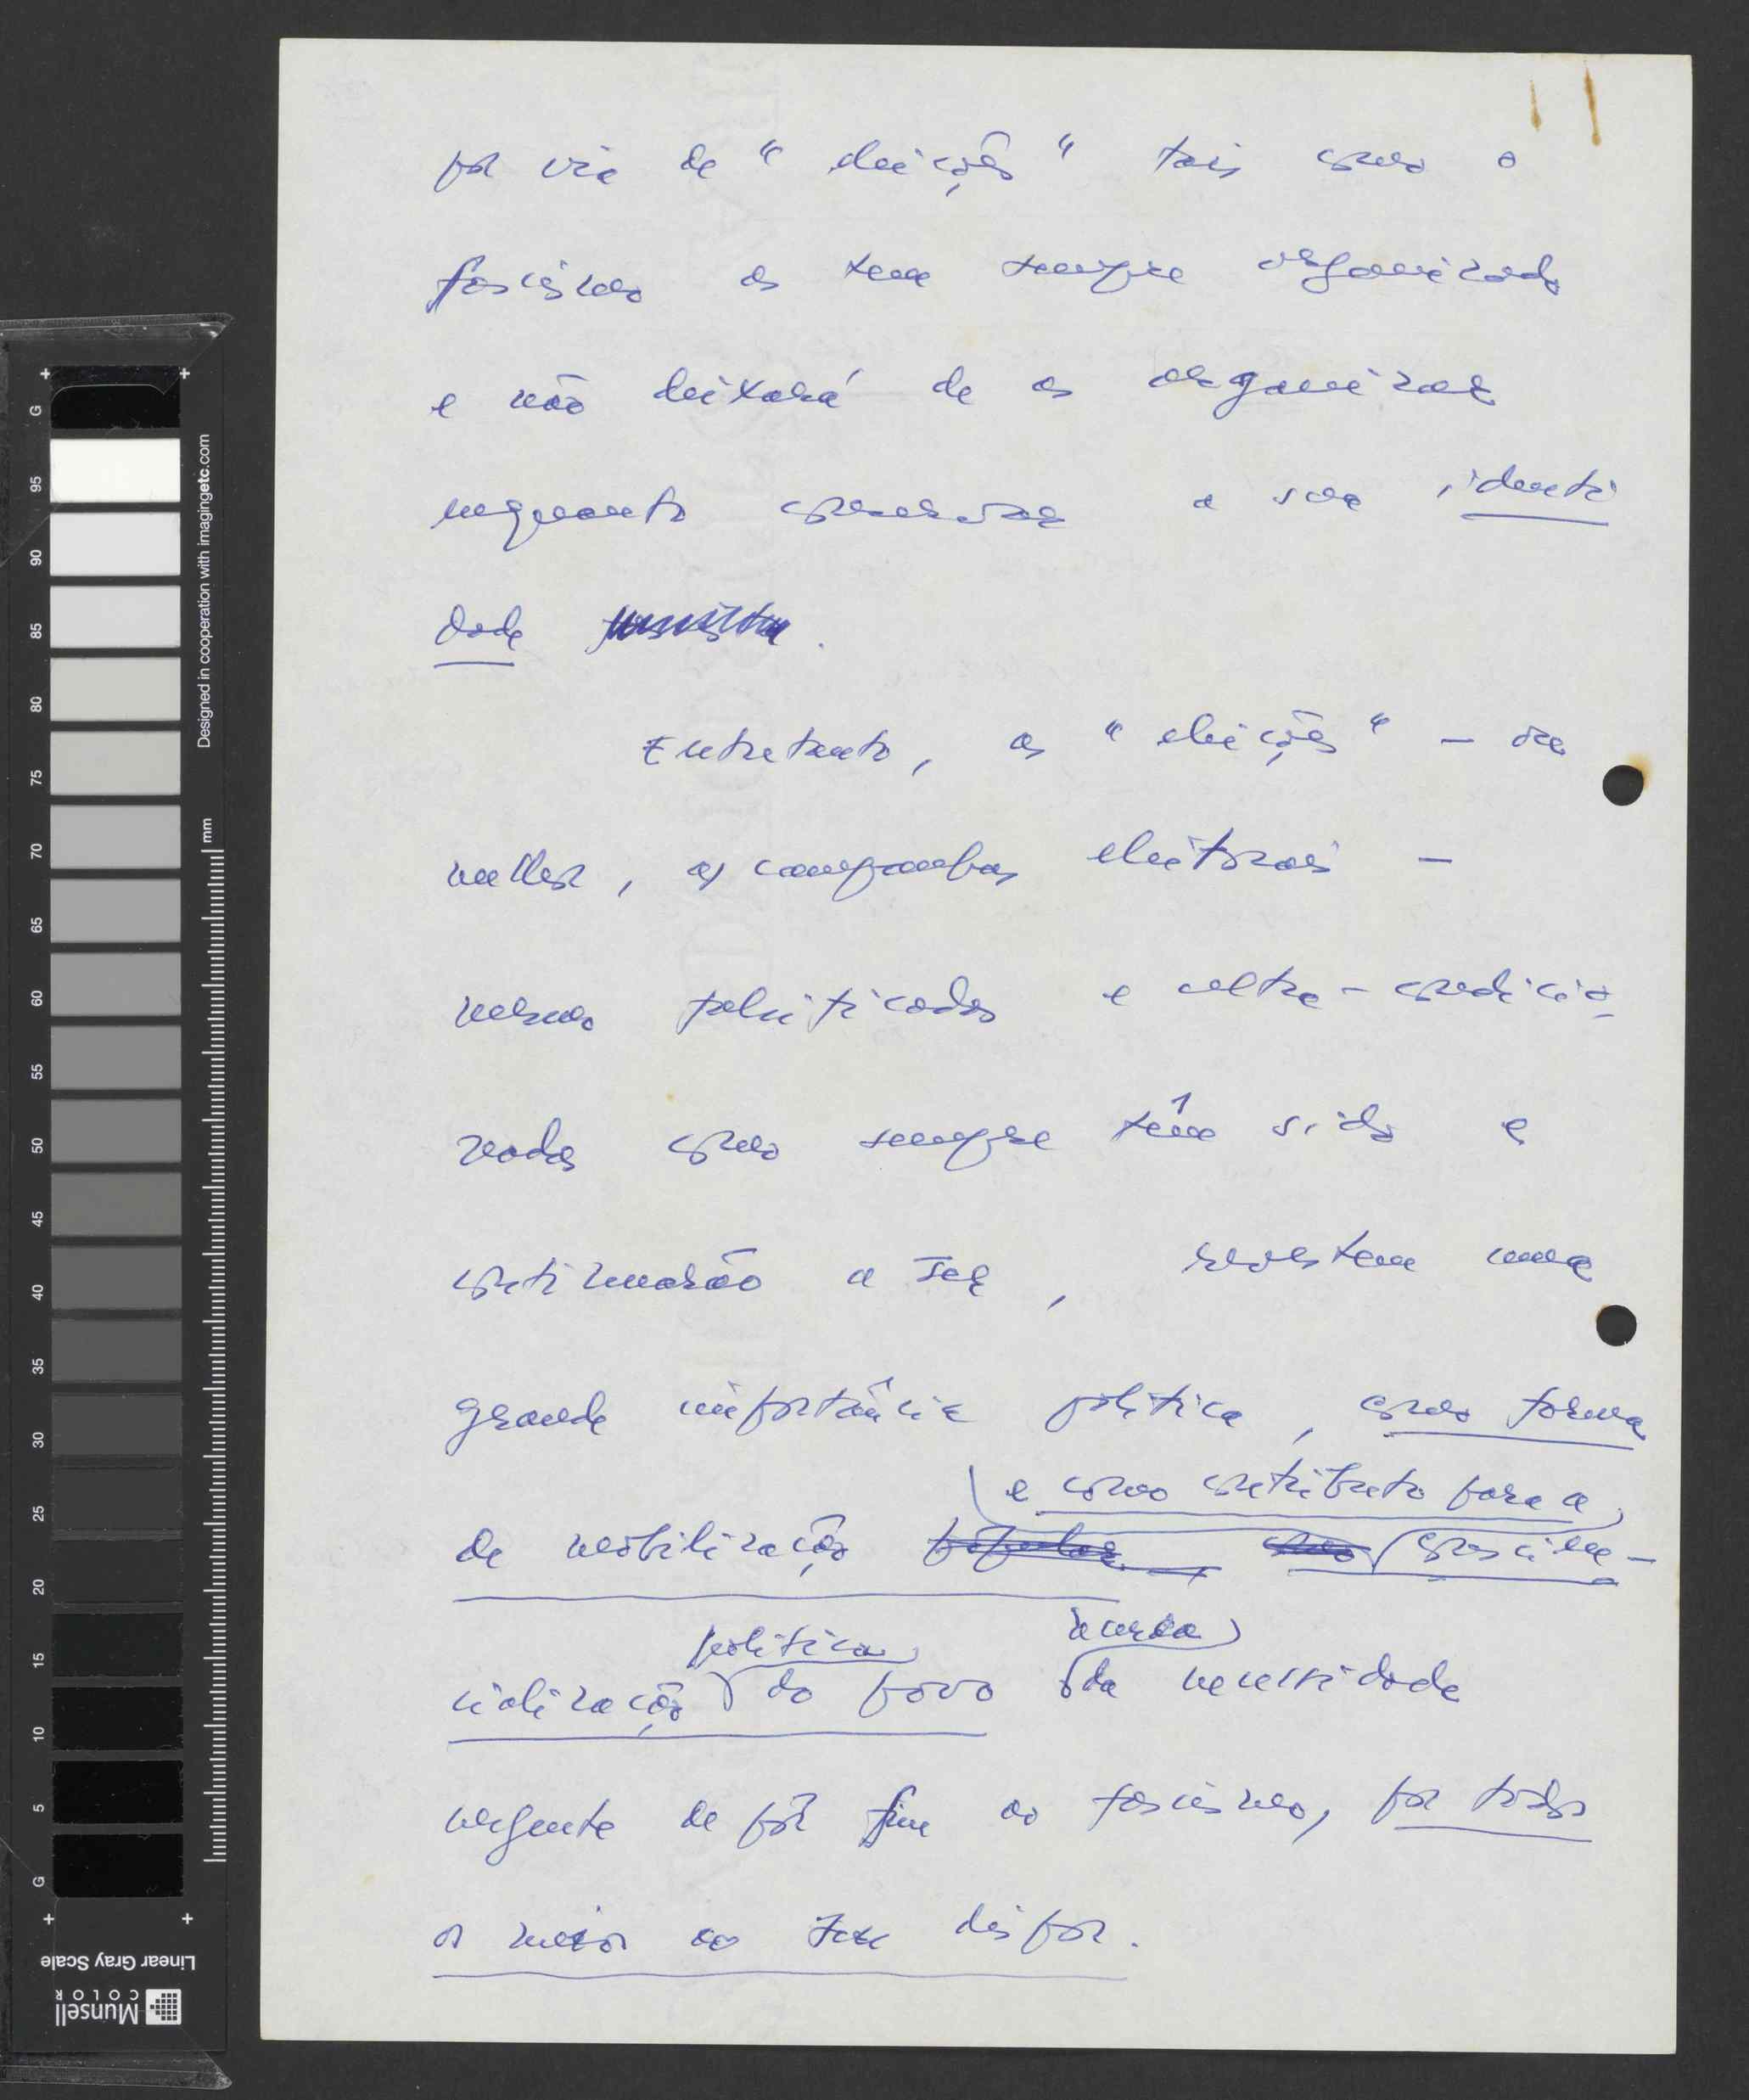 por via de "eleições" tais como o
fascismo as tem sempre organizado
e não deixará de as organizar
enquanto conservar a sua identi
dade
Entretanto, as "eleições" – ou
melhor, as campanhas eleitorais –
mesmo falsificadas e ultra-condicio-
nadas como sempre têm sido e
continuarão a ser, revestem uma
grande importância política, como forma
e como contributo para a
de mobilização popular como conscien-
política acerca
cialização do povo da necessidade
urgente de pôr fim ao fascismo, por todos
os meios ao seu dispor.
G
95
90
85
80
75
70
65
60
55
50
45
40
35
30
25
20
15
10
5
G
mm
Designed in cooperation with imagingetc.com
Linear Gray Scale
Munsell
COLOR